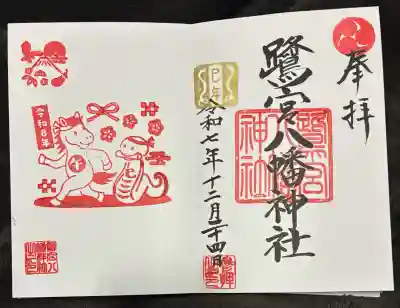 奉拝
鷺宮八幡神社
鷺宮
神社
巳年
令和七年十二月二十四日
令和8年
午